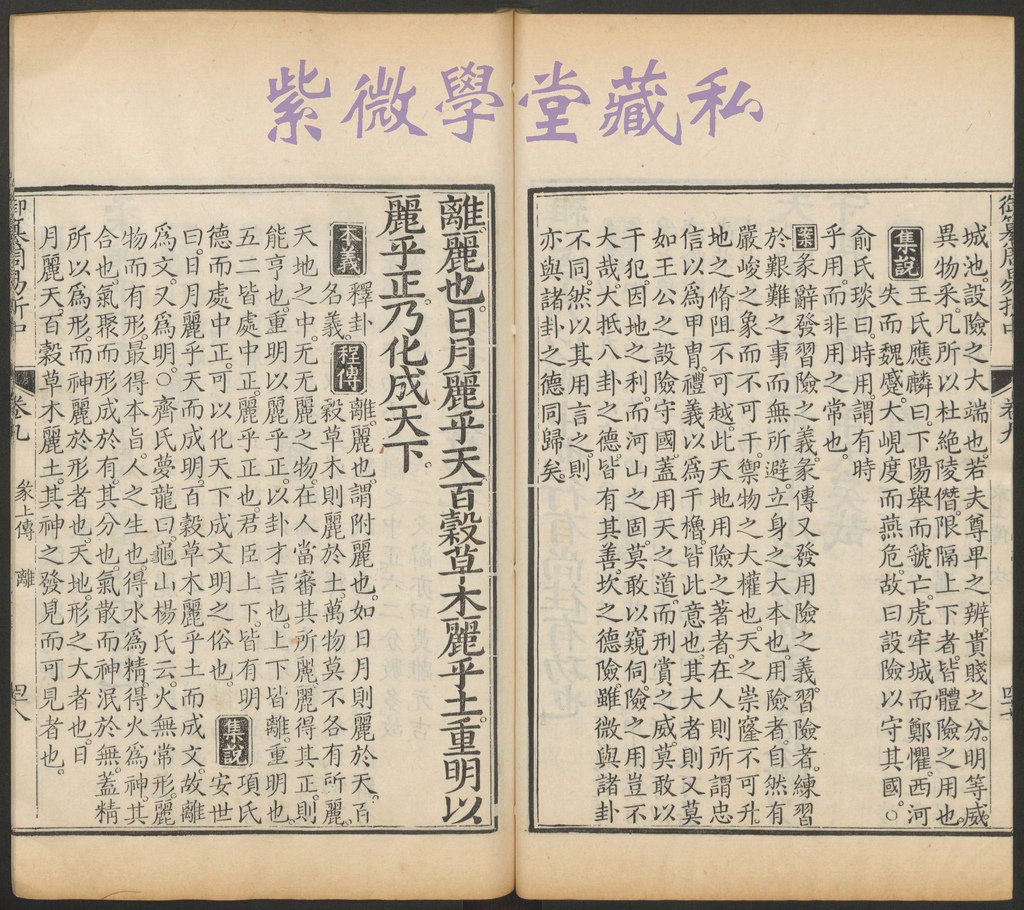 紫微學堂藏私
御纂周易折中 卷九 四十七
城池。設險之大端也。若夫尊卑之辨。貴賤之分。明等威。
異物采。凡所以杜絶陵僭。限隔上下者。皆體險之用也。
集說 王氏應麟曰。下陽舉而虢亡。虎牢城而鄭懼。西河
失而魏蹙。大峴度而燕危。故曰設險以守其國。○
俞氏琰曰。時用。謂有時
乎用。而非用之常也。
案 彖辭發習險之義。彖傳又發用險之義。習險者。練習
於艱難之事。而無所避。立身之大本也。用險者。自然有
嚴峻之象。而不可干。禦物之大權也。天之崇窿不可升。
地之脩阻不可越。此天地用險之著者。在人則所謂忠
信以爲甲冑。禮義以爲干櫓。皆此意也。其大者則又莫
如王公之設險守國。蓋用天之道。而刑賞之威。莫敢以
干犯。因地之利。而河山之固。莫敢以窺伺。險之用豈不
大哉。大抵八卦之德。皆有其善。坎之德險。雖微與諸卦
不同。然以其用言之。則
亦與諸卦之德同歸矣。
離。麗也。日月麗乎天。百穀草木麗乎土。重明以
麗乎正。乃化成天下。
本義 釋卦名義。 程傳 離。麗也。謂附麗也。如日月則麗於天。百
穀草木則麗於土。萬物莫不各有所麗。
天地之中。无无麗之物。在人當審其所麗。麗得其正。則
能亨也。重明以麗乎正。以卦才言也。上下皆離。重明也。
五二皆處中正。麗乎正也。君臣上下。皆有明
德而處中正。可以化天下成文明之俗也。 集說 項氏安世
曰。日月麗乎天而成明。百穀草木麗乎土而成文。故離
爲文。又爲明。○齊氏夢龍曰。龜山楊氏云。火無常形。麗
物而有形。最得本旨。人之生也。得水爲精。得火爲神。其
合也。氣聚而形成於有。其分也。氣散而神泯於無。蓋精
所以爲形。而神麗於形者也。天地。形之大者也。日
月麗天。百穀草木麗土。其神之發見而可見者也。
御纂周易折中 卷九 彖上傳 離 四十八